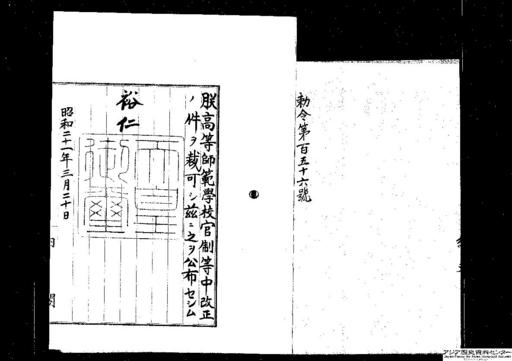 勅令第百五十六號
朕高等師範學校官制等中改正
ノ件ヲ裁可シ茲ニ之ヲ公布セシム
裕仁
天皇御璽
昭和二十一年三月二十日
内閣
アジア歴史資料センター